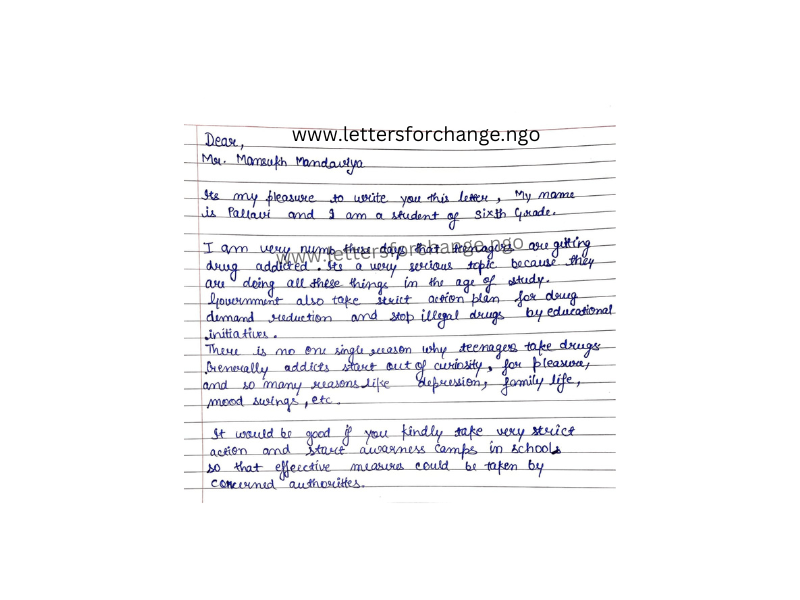 www.lettersforchange.ngo
Dear,
Mr. Mansukh Mandaviya
Its my pleasure to write you this letter, My name
is Pallavi and I am a student of Sixth Grade.
I am very numb these days that teenagers are getting
www.lettersforchange.ngo
drug addicted. Its a very serious topic because they
are doing all these things in the age of study.
Government also take strict action plan for drug
demand reduction and stop illegal drugs by educational
initiatives.
There is no one single reason why teenagers take drugs
Generally addicts start out of curiosity, for pleasure,
and so many reasons like depression, family life,
mood swings, etc.
It would be good if you kindly take very strict
action and start awarness camps in schools
so that effective measures could be taken by
concerned authorities.